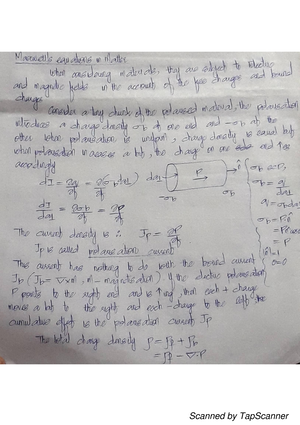 Maxwell's equations in Matter
When considering materials, they are subject to electric
and magnetic fields in the account of the free charges and bound
charges
Consider a tiny chunk of the polarised material, the polarisation
introduces a charge density σb at one end and -σb at the
other. When polarisation is uniform, charge density is equal but
when polarisation increases a bit, the charge on the ends and
accordingly
-σb
P
σb
The current density is ∴ Jp = ∂P/∂t
Jp is called polarisation current
This current has nothing to do with the bound current
Jb (Jb = ∇×M, M - magnetisation). If the electric polarisation
P points to the right and and is ↑ing, then each + charge
moves a bit to the right and each - charge to the left. The
cumulative effect is the polarisation current Jp
The total charge density ρ = ρf + ρb
= ρf - ∇·P
Scanned by TapScanner